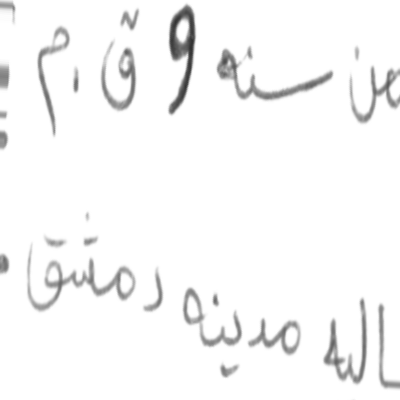 من سنه 9 ق.م
اله مدينه دمشق